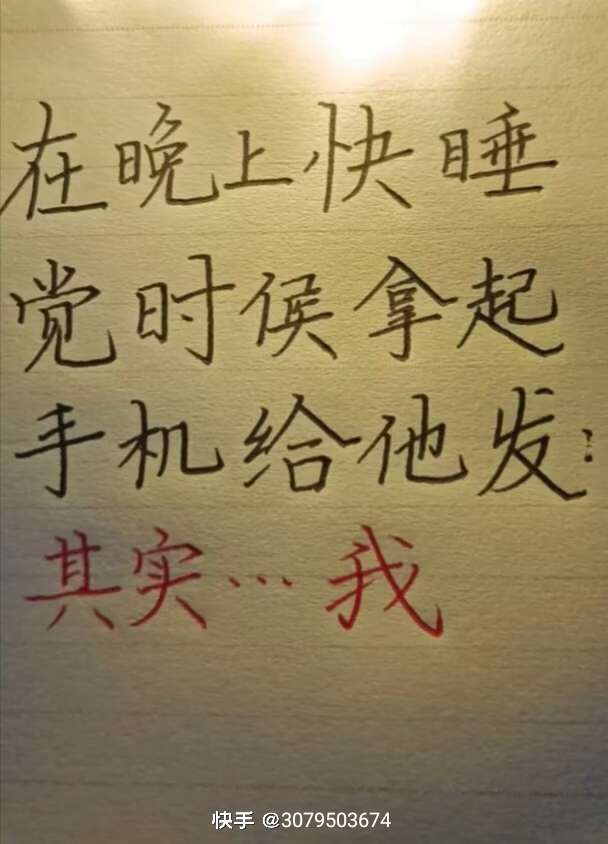 在晚上快睡
觉时侯拿起
手机给他发:
其实…我
快手 @3079503674